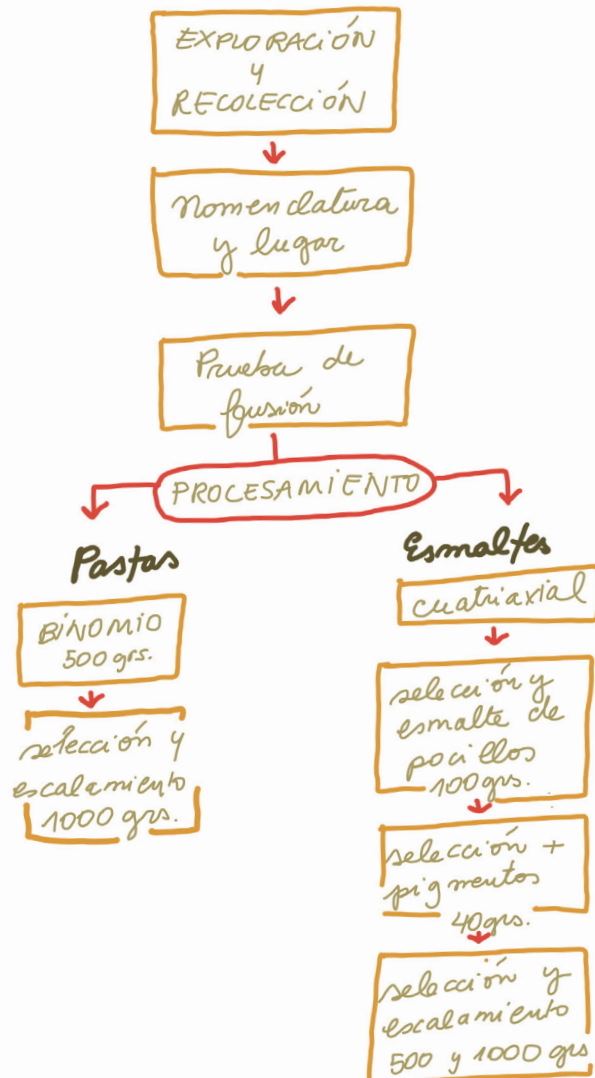 EXPLORACIÓN
y
RECOLECCIÓN
Nomenclatura
y lugar
Prueba de
fusión
PROCESAMIENTO
Pastas
BINOMIO
500 grs.
selección y
escalamiento
1000 grs.
Esmaltes
cuatriaxial
selección y
esmalte de
pocillos
100grs.
selección +
pigmentos
40grs.
selección y
escalamiento
500 y 1000 grs